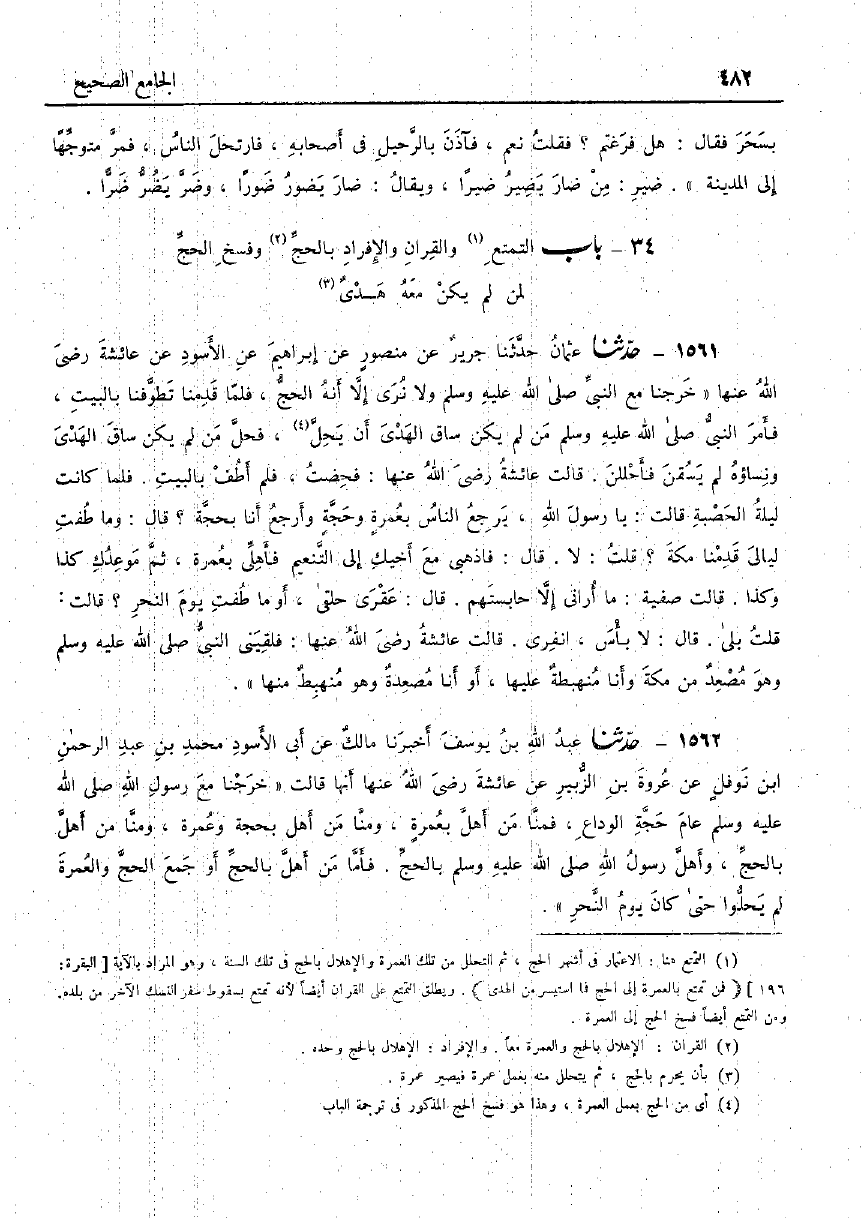 ٤٨٢
الجامع الصحيح
بسَحَرَ فقال : هل فرَغتم ؟ فقلتُ نعم ، فآذَنَ بالرَّحيلِ فى أَصحابهِ ، فارتحلَ الناسُ ، فمرَّ متوجِّهًا
إلى المدينة » . ضيرِ : مِنْ ضارَ يَضِيرُ ضَيرًا ، ويقالُ : ضارَ يَضورُ ضَورًا ، وضَرَّ يَضُرُّ ضَرًّا .
٣٤ – باب التمتعِ (١) والقِرانِ والإفرادِ بالحجِّ (٢) وفسخِ الحجِّ
لمن لم يكنْ معَهُ هَـدْىٌ (٣)
١٥٦١ – حدّثنا عثمانُ حدَّثَنا جريرٌ عن منصورٍ عن إبراهيمَ عنِ الأَسودِ عن عائشةَ رضىَ
اللهُ عنها « خَرجنا مع النبىِّ صلىٰ الله عليهِ وسلم ولا نُرَى إلَّا أَنهُ الحجُّ ، فلمّا قَدِمنا تَطوَّفنا بالبيتِ ،
فأَمرَ النبىُّ صلىٰ الله عليهِ وسلم مَن لم يكن ساق الهَدْىَ أَن يَحِلَّ (٤) ، فحلَّ مَن لم يكن ساقَ الهَدْىَ
ونِساؤهُ لم يَسُقنَ فأَحْللنَ . قالت عائشةُ رضىَ اللهُ عنها : فحِضتُ ، فلم أَطُفْ بالبيتِ . فلما كانت
ليلةُ الحَصْبةِ قالت : يا رسولَ اللهِ ، يَرجِعُ الناسُ بعُمرةٍ وحَجَّةٍ وأَرجعُ أَنا بحجَّة ؟ قال : وما طُفتِ
ليالىَ قَدِمْنا مكةَ ؟ قلتُ : لا . قال : فاذهبى معَ أَخيكِ إلى التَّنعيم فأَهِلِّى بعُمرة ، ثمَّ مَوعِدُكِ كذا
وكذا . قالت صفية : ما أُرانى إلَّا حابستَهم . قال : عَقْرَى حلقىٰ ، أَو ما طُفتِ يومَ النحرِ ؟ قالت :
قلتُ بلىٰ . قال : لا بأْسَ ، انفِرى . قالت عائشةُ رضىَ اللهُ عنها : فلقيَنى النبىُّ صلى الله عليه وسلم
وهوَ مُصْعِدٌ من مكةَ وأَنا مُنهبطةٌ عليها ، أَو أَنا مُصعِدةٌ وهو مُنهبِطٌ منها » .
١٥٦٢ – حدّثنا عبدُ اللهِ بنُ يوسفَ أَخبرَنا مالكٌ عن أَبى الأَسودِ محمدِ بنِ عبدِ الرحمٰنِ
ابن نَوفلٍ عن عُروةَ بنِ الزُّبيرِ عن عائشةَ رضىَ اللهُ عنها أَنها قالت « خرَجْنا معَ رسولِ اللهِ صلى الله
عليه وسلم عامَ حَجَّةِ الوداعِ ، فمنَّا مَن أَهلَّ بعُمرةٍ ، ومنَّا مَن أَهل بحجة وعُمرة ، ومنَّا من أَهلَّ
بالحجِّ ، وأَهلَّ رسولُ اللهِ صلى الله عليهِ وسلم بالحجِّ . فأَمَّا مَن أَهلَّ بالحجِّ أَو جَمعَ الحجَّ والعُمرةَ
لم يَحلُّوا حتىٰ كانَ يومُ النَّحرِ » .
(١) التمتع هنا : الاعتمار فى أشهر الحج ، ثم التحلل من تلك العمرة والإهلال بالحج فى تلك السنة ، وهو المراد بالآية [ البقرة :
١٩٦ ] ﴿ فمن تمتع بالعمرة إلى الحج فما استيسر من الهدى ﴾ . ويطلق التمتع على القران أيضاً لأنه تمتع بسقوط سفر النسك الآخر من بلده.
ومن التمتع أيضاً فسخ الحج إلى العمرة .
(٢) القران : الإهلال بالحج والعمرة معاً . والإفراد : الإهلال بالحج وحده .
(٣) بأن يحرم بالحج ، ثم يتحلل منه بعمل عمرة فيصير عمرة .
(٤) أى من الحج بعمل العمرة ، وهذا هو فسخ الحج المذكور فى ترجمة الباب